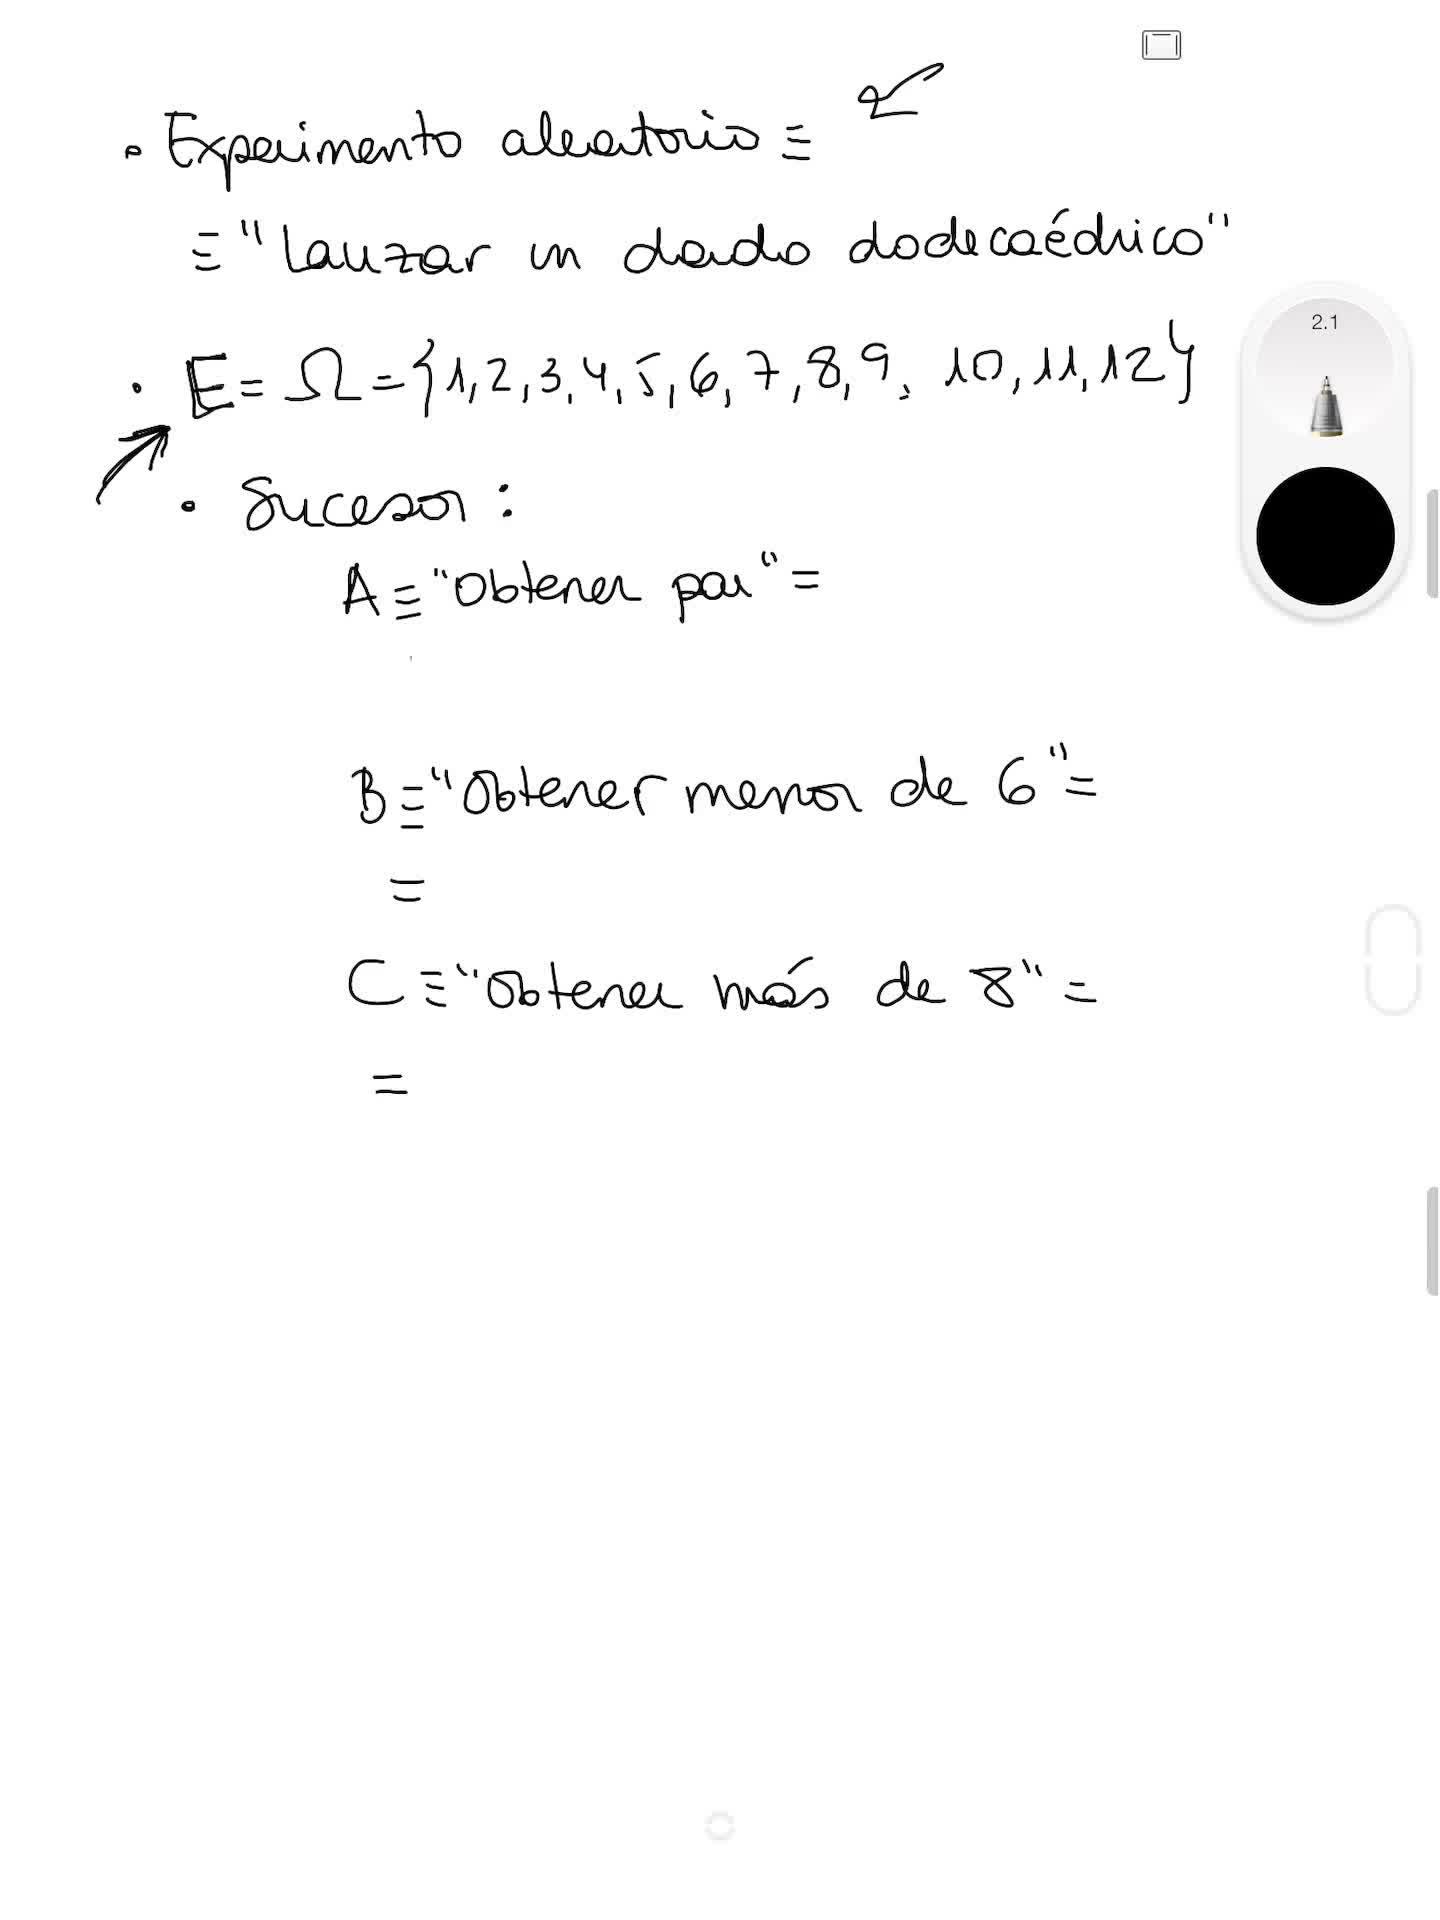 • Experimento aleatorio ≡
≡ "Lanzar un dado dodecaédrico"
• E = Ω = {1, 2, 3, 4, 5, 6, 7, 8, 9, 10, 11, 12}
2.1
• Sucesos:
A ≡ "Obtener par" =
B ≡ "Obtener menor de 6" =
=
C ≡ "Obtener más de 8" =
=